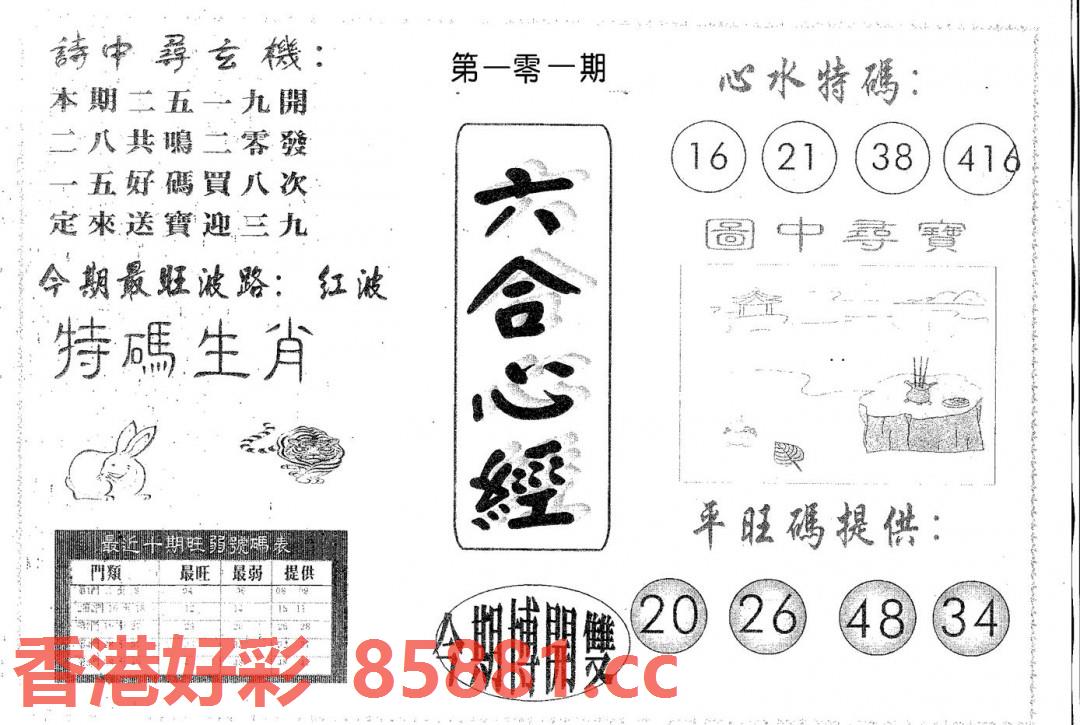 詩中尋玄機：
本期二五一九開
二八共鳴二零發
一五好碼買八次
定來送寶迎三九
今期最旺波路：紅波
特碼生肖
最近十期旺弱號碼表
門類 最旺 最弱 提供
第一零一期
六合心經
今期博開雙
心水特碼：
16 21 38 416
圖中尋寶
平旺碼提供：
20 26 48 34
香港好彩 85881.cc